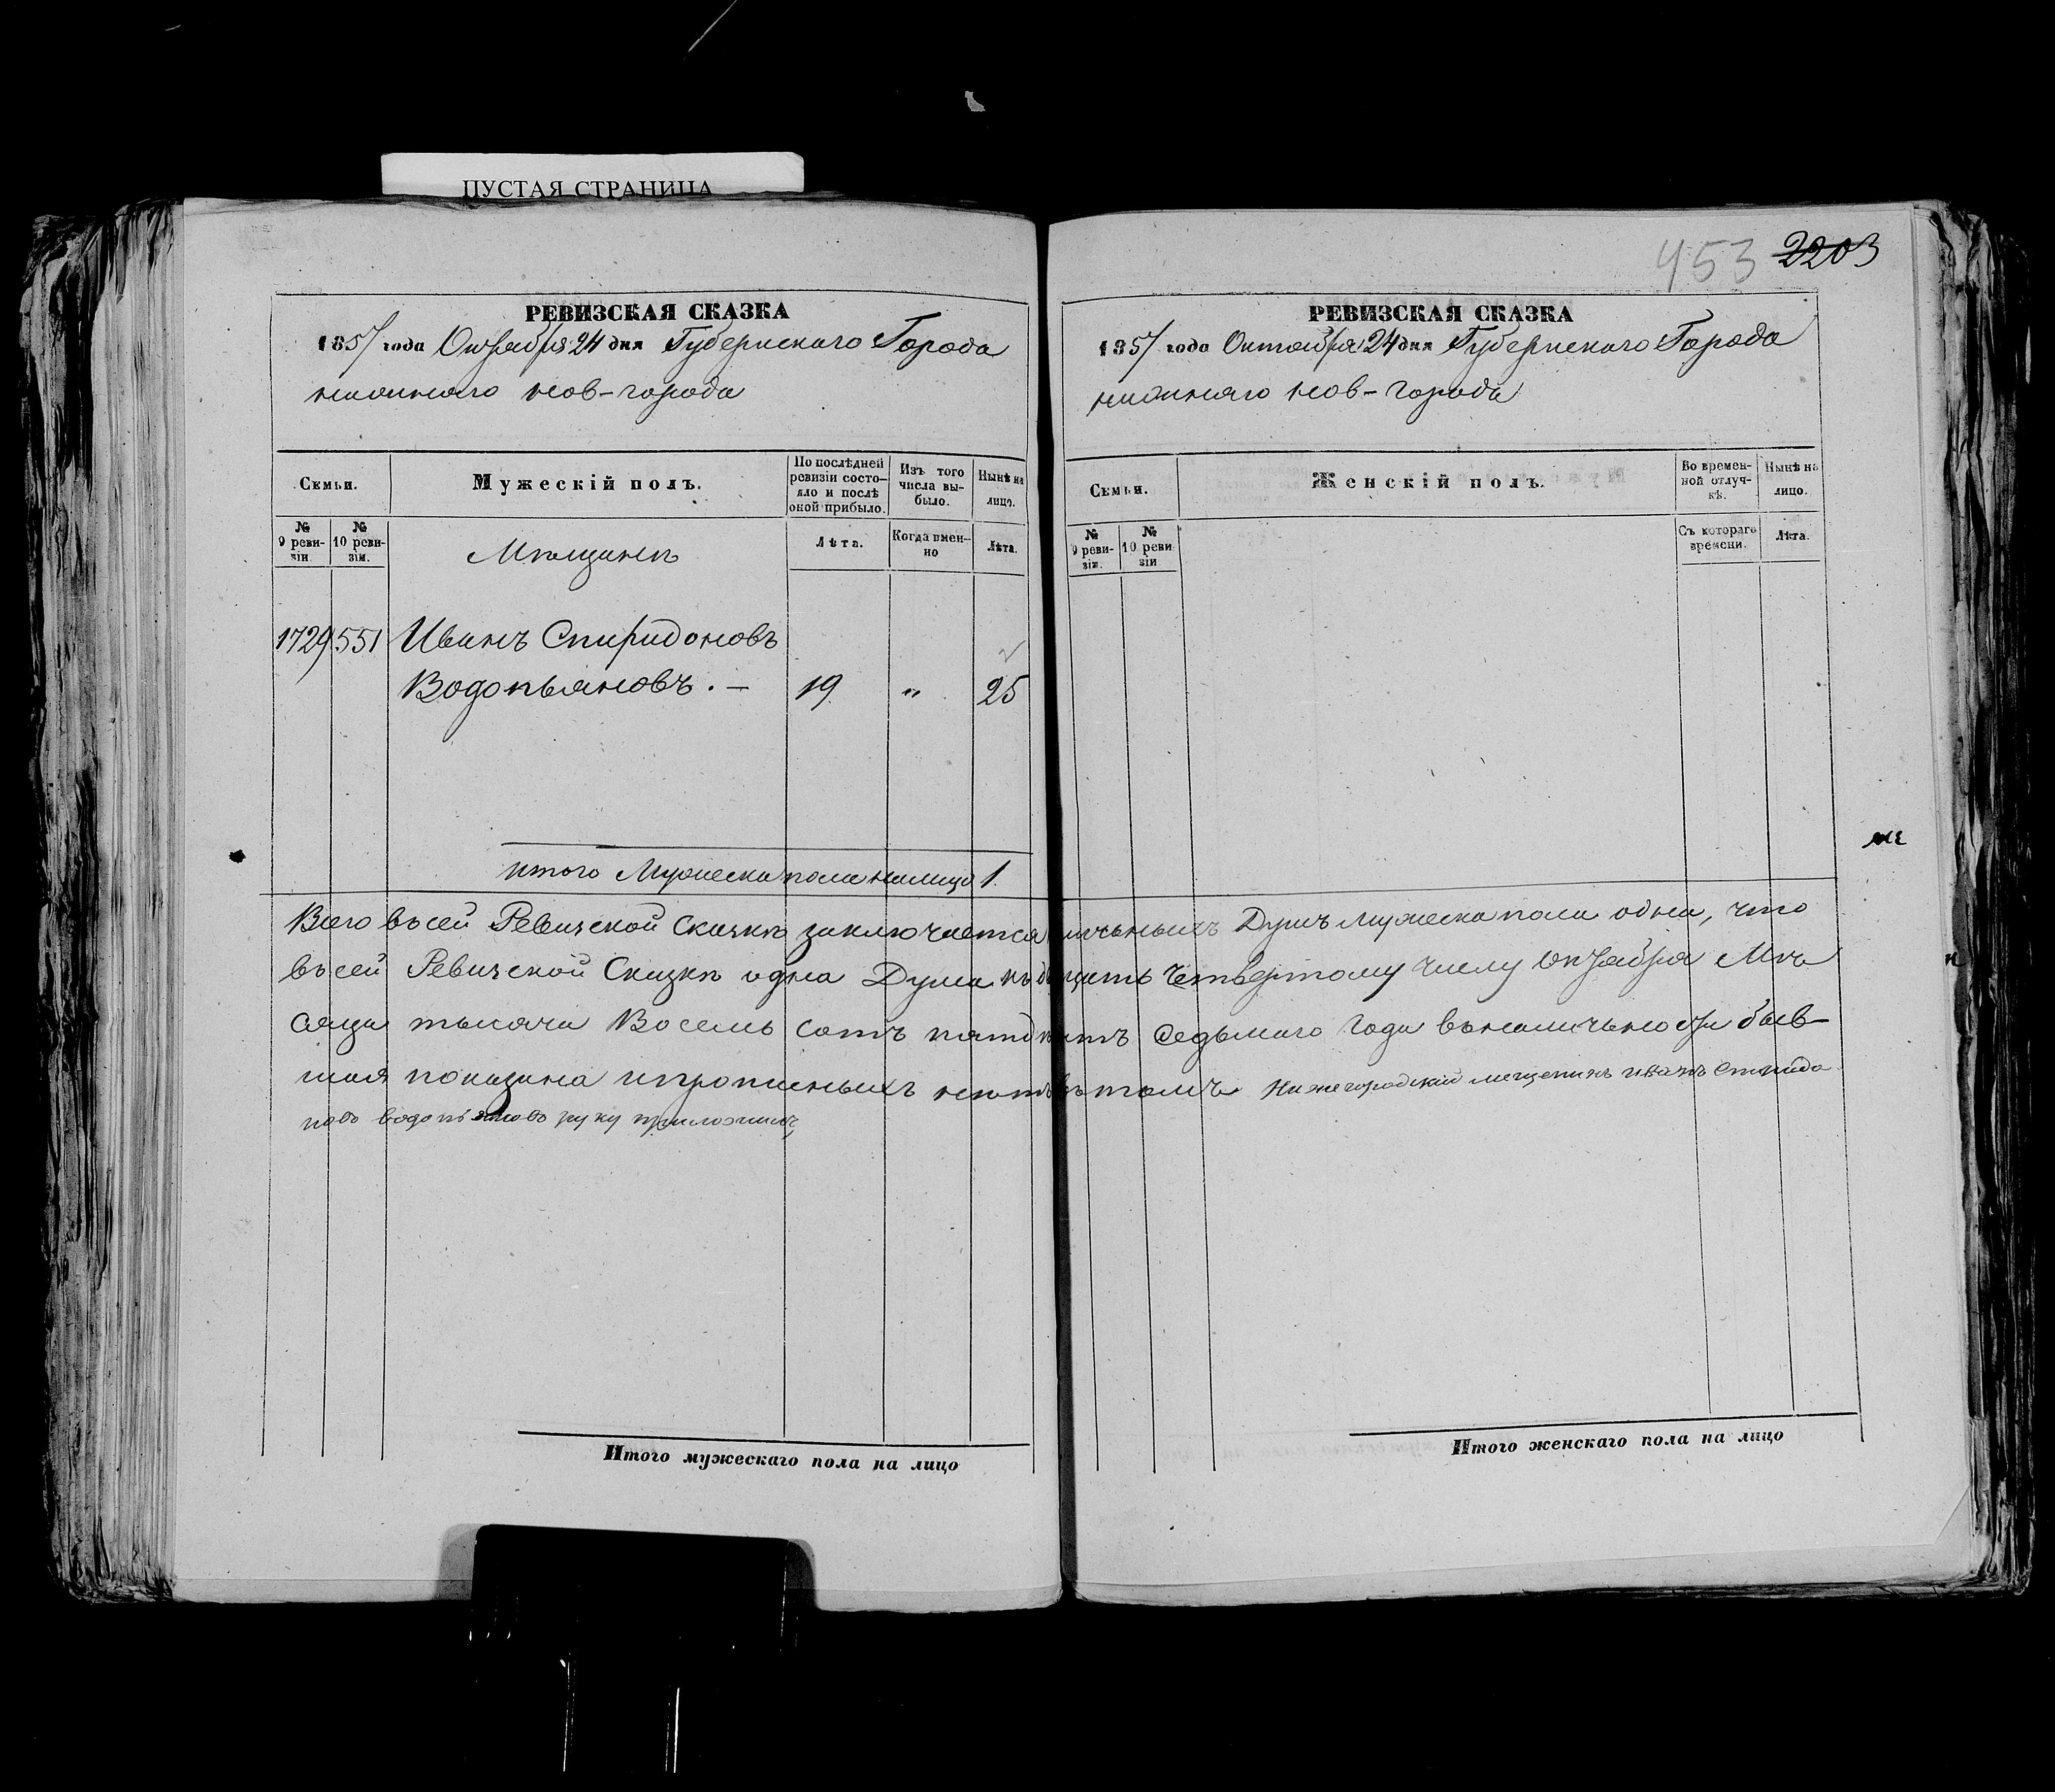 ПУСТАЯ СТРАНИЦА
РЕВИЗСКАЯ СКАЗКА
1857 года Октября 24 дня Губернскаго Города
нижняго нов-города
Семьи.
Мужескій полъ.
По послѣдней ревизіи состояло и послѣ оной прибыло.
Изъ того числа выбыло.
Нынѣ на лицо.
№ 9 ревизіи.
№ 10 ревизіи.
Лѣта.
Когда имен-но
Лѣта.
Мѣщанѣ
1729 551 Иванъ Спиридоновъ
Водопьяновъ. — 19 " 25
итого Мужеска пола налицо 1.
453 2203
РЕВИЗСКАЯ СКАЗКА
1857 года Октября 24 дня Губернскаго Города
нижняго нов-города
Семьи.
Женскій полъ.
Во времен-ной отлуч-кѣ.
Нынѣ на лицо.
№ 9 реви-зіи.
№ 10 реви-зіи
Съ котораго времени.
Лѣта.
Всего въсей Ревизской Сказкѣ заключается Душъ мужеска пола одна, что
въсей Ревизской Сказкѣ одна Душа четвертому числу октября Мѣ
сяца тысяча Восемь сотъ седьмаго года въналичьности быв-
шая показана ипрописныхъ нѣтъ вътомъ Нижегородский мещенинъ иванъ Спиридо
новъ водопьяновъ руку приложилъ
Итого мужескаго пола на лицо
Итого женскаго пола на лицо